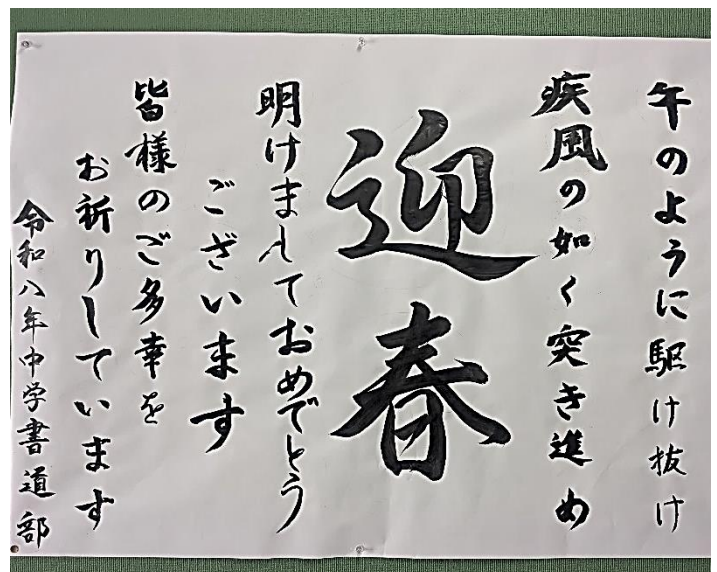 午のように駆け抜け
疾風の如く突き進め
迎春
明けましておめでとう
ございます
皆様のご多幸を
お祈りしています
令和八年中学書道部